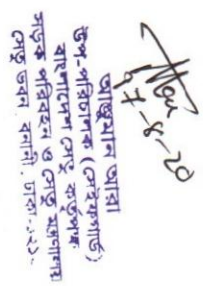 17-8-20
আঞ্জুমান আরা
উপ-পরিচালক (
বাংলাদেশ সেতু কর্তৃপক্ষ
সড়ক পরিবহন ও সেতু মন্ত্রণালয়
সেতু ভবন, বনানী, ঢাকা-১২১২